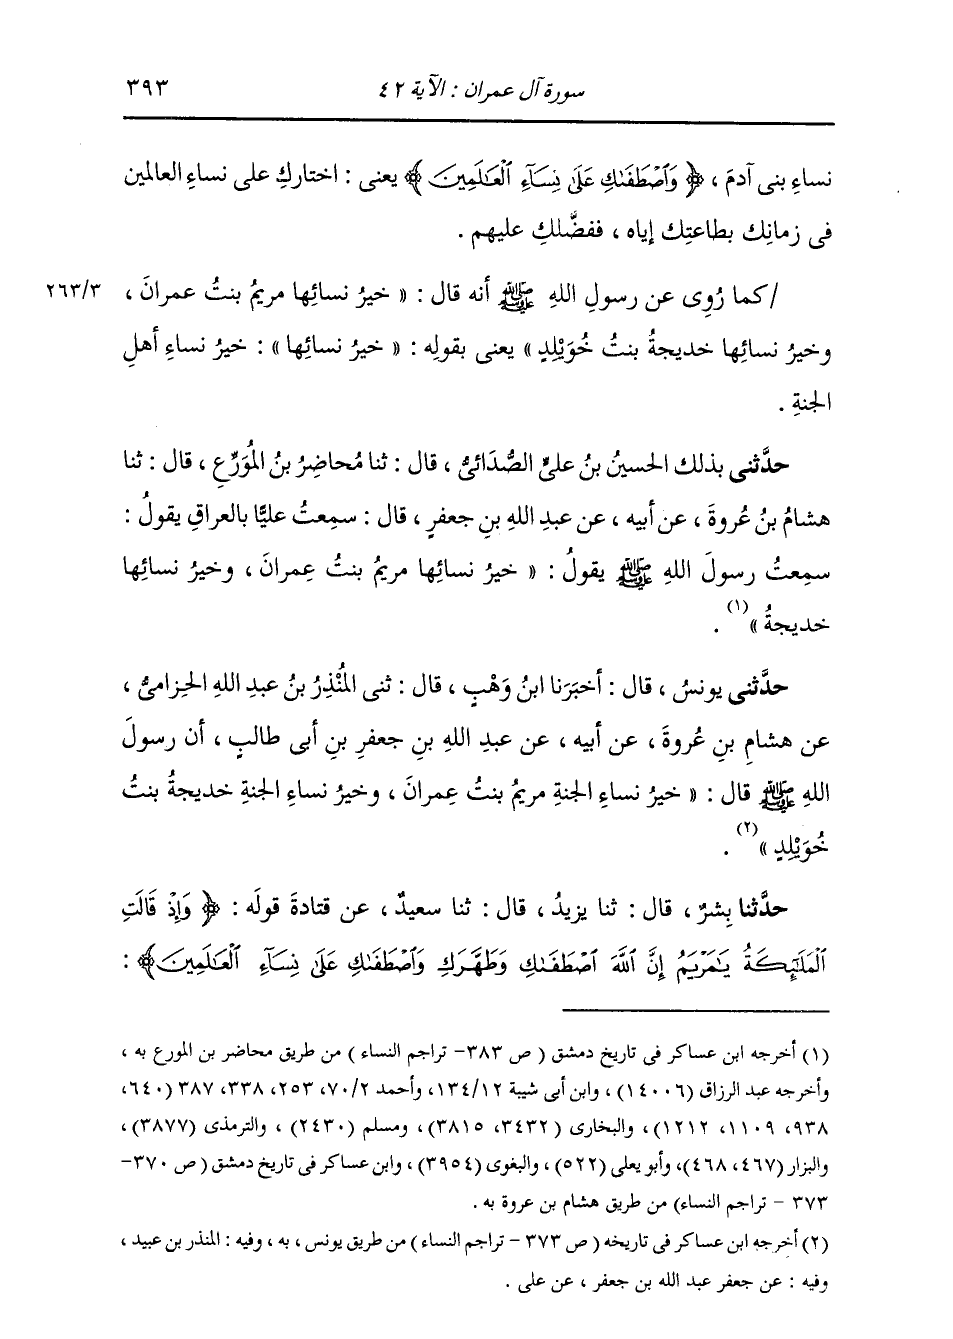 سورة آل عمران : الآية ٤٢ ٣٩٣
نساءِ بنى آدمَ ، ﴿ وَٱصْطَفَىٰكِ عَلَىٰ نِسَآءِ ٱلْعَـٰلَمِينَ ﴾ يعنى : اختاركِ على نساءِ العالمين
فى زمانِك بطاعتِك إياه ، ففضَّلكِ عليهم .
/كما رُوِى عن رسولِ اللهِ ﷺ أنه قال : « خيرُ نسائِها مريمُ بنتُ عمرانَ ، ٢٦٣/٣
وخيرُ نسائِها خديجةُ بنتُ خُوَيْلِدٍ » يعنى بقولِه : « خيرُ نسائِها » : خيرُ نساءِ أهلِ
الجنةِ .
حدَّثنى بذلك الحسينُ بنُ علىٍّ الصُّدَائىُّ ، قال : ثنا مُحاضِرُ بنُ المُوَرِّعِ ، قال : ثنا
هشامُ بنُ عُروةَ ، عن أبيه ، عن عبدِ اللهِ بنِ جعفرٍ ، قال : سمِعتُ عليًّا بالعراقِ يقولُ :
سمِعتُ رسولَ اللهِ ﷺ يقولُ : « خيرُ نسائِها مريمُ بنتُ عِمرانَ ، وخيرُ نسائِها
خديجةُ »(١) .
حدَّثنى يونسُ ، قال : أخبَرَنا ابنُ وَهْبٍ ، قال : ثنى المُنْذِرُ بنُ عبدِ اللهِ الحِزامىُّ ،
عن هشامِ بنِ عُروةَ ، عن أبيه ، عن عبدِ اللهِ بنِ جعفرِ بنِ أبى طالبٍ ، أن رسولَ
اللهِ ﷺ قال : « خيرُ نساءِ الجنةِ مريمُ بنتُ عِمرانَ ، وخيرُ نساءِ الجنةِ خديجةُ بنتُ
خُوَيْلِدٍ »(٢) .
حدَّثنا بِشرٌ ، قال : ثنا يزيدُ ، قال : ثنا سعيدٌ ، عن قتادةَ قولَه : ﴿ وَإِذْ قَالَتِ
ٱلْمَلَـٰٓئِكَةُ يَـٰمَرْيَمُ إِنَّ ٱللَّهَ ٱصْطَفَىٰكِ وَطَهَّرَكِ وَٱصْطَفَىٰكِ عَلَىٰ نِسَآءِ ٱلْعَـٰلَمِينَ ﴾ :
(١) أخرجه ابن عساكر فى تاريخ دمشق ( ص ٣٨٣- تراجم النساء ) من طريق محاضر بن المورع به ،
وأخرجه عبد الرزاق (١٤٠٠٦) ، وابن أبى شيبة ١٣٤/١٢، وأحمد ٧٠/٢، ٢٥٣، ٣٣٨، ٣٨٧ (٦٤٠،
٩٣٨، ١١٠٩، ١٢١٢)، والبخارى (٣٤٣٢، ٣٨١٥)، ومسلم (٢٤٣٠) ، والترمذى (٣٨٧٧)،
والبزار (٤٦٧، ٤٦٨)، وأبو يعلى (٥٢٢) ، والبغوى (٣٩٥٤) ، وابن عساكر فى تاريخ دمشق ( ص ٣٧٠-
٣٧٣ - تراجم النساء) من طريق هشام بن عروة به .
(٢) أخرجه ابن عساكر فى تاريخه ( ص ٣٧٣ - تراجم النساء ) من طريق يونس ، به ، وفيه : المنذر بن عبيد ،
وفيه : عن جعفر عبد الله بن جعفر ، عن على .